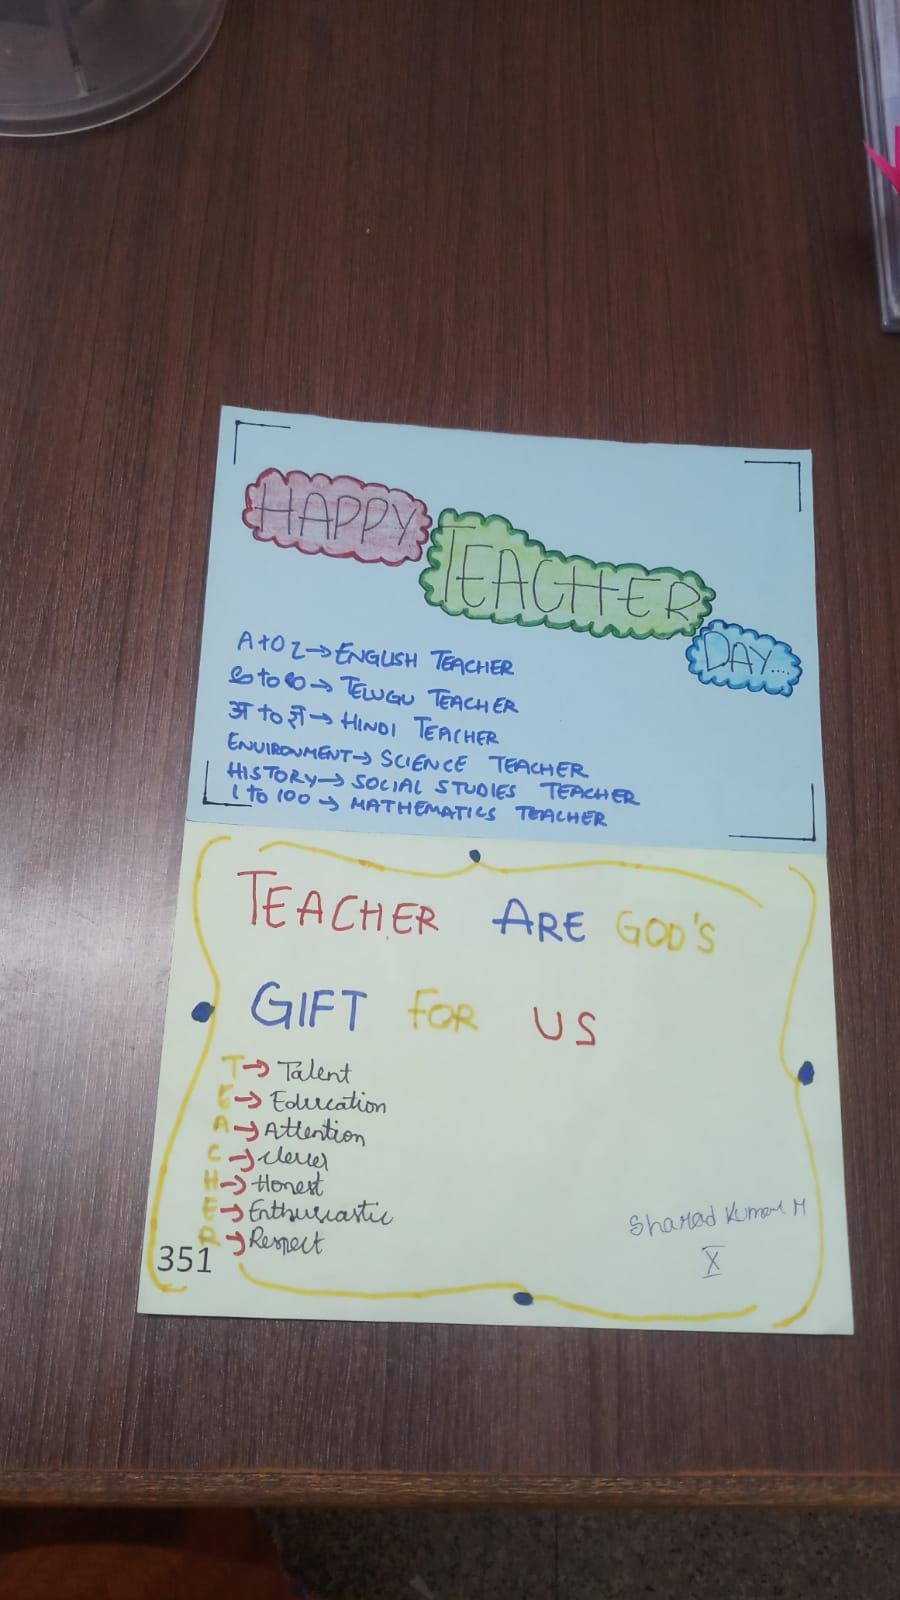 HAPPY
TEACHER
DAY....
A to Z → ENGLISH TEACHER
to → TELUGU TEACHER
अ to ज्ञ → HINDI TEACHER
ENVIRONMENT → SCIENCE TEACHER
HISTORY → SOCIAL STUDIES TEACHER
1 to 100 → MATHEMATICS TEACHER
TEACHER ARE GOD'S
GIFT FOR US
T → Talent
E → Education
A → Attention
C → clever
H → Honest
E → Enthusiastic
R → Respect
Sharad Kumar M
X
351